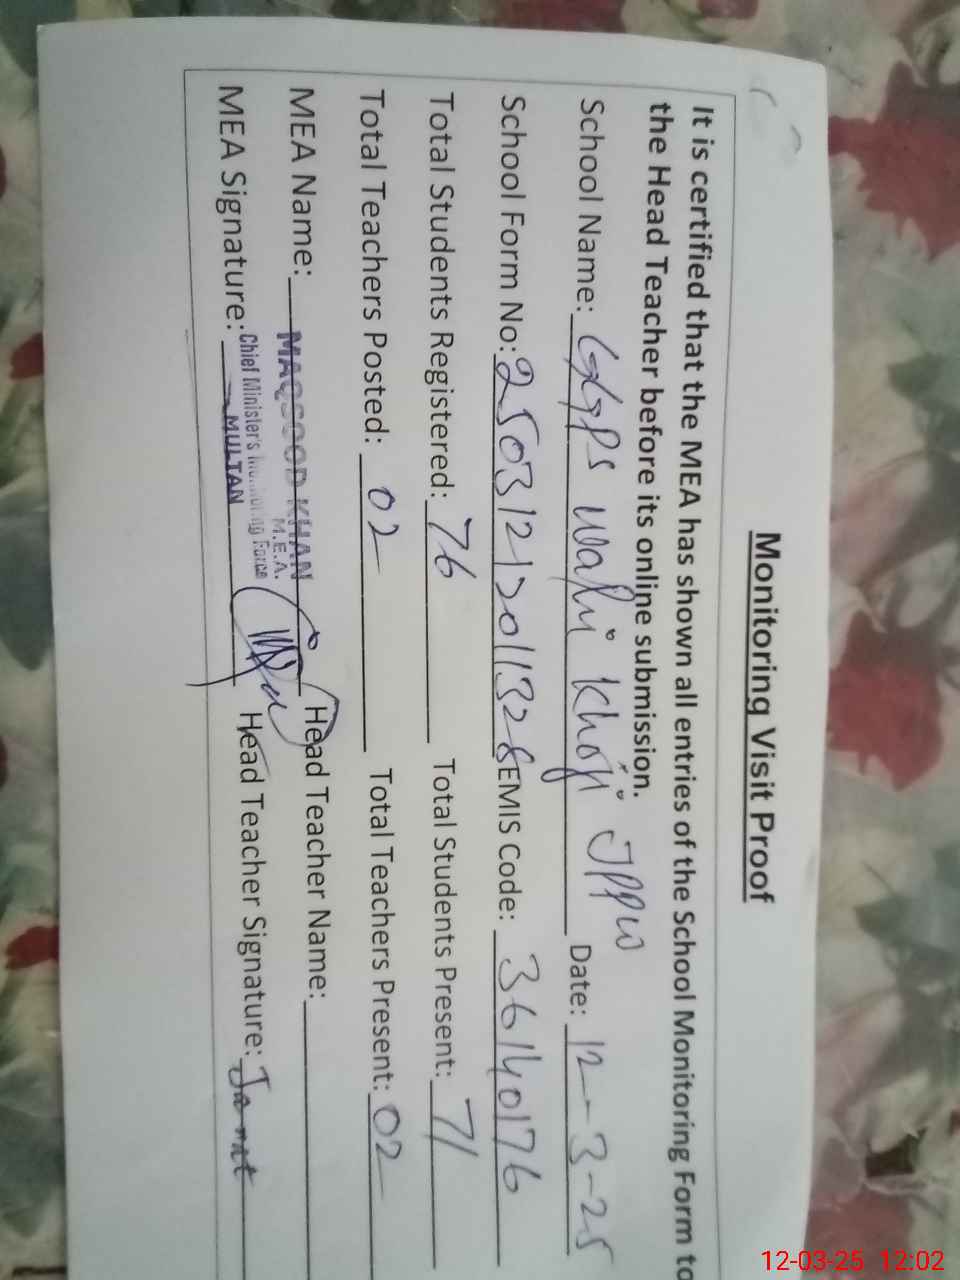 Monitoring Visit Proof
It is certified that the MEA has shown all entries of the School Monitoring Form to
the Head Teacher before its online submission.
School Name: GGPS Wahi Khoji JPPW Date: 12-3-25
School Form No: EMIS Code: 36140176
Total Students Registered: 76 Total Students Present: 71
Total Teachers Posted: 02 Total Teachers Present: 02
MEA Name: MAQSOOD KHAN Head Teacher Name:
M.E.A.
Chief Minister's Monitoring Force
MEA Signature: MULTAN Head Teacher Signature: Jannat
12-03-25 12:02